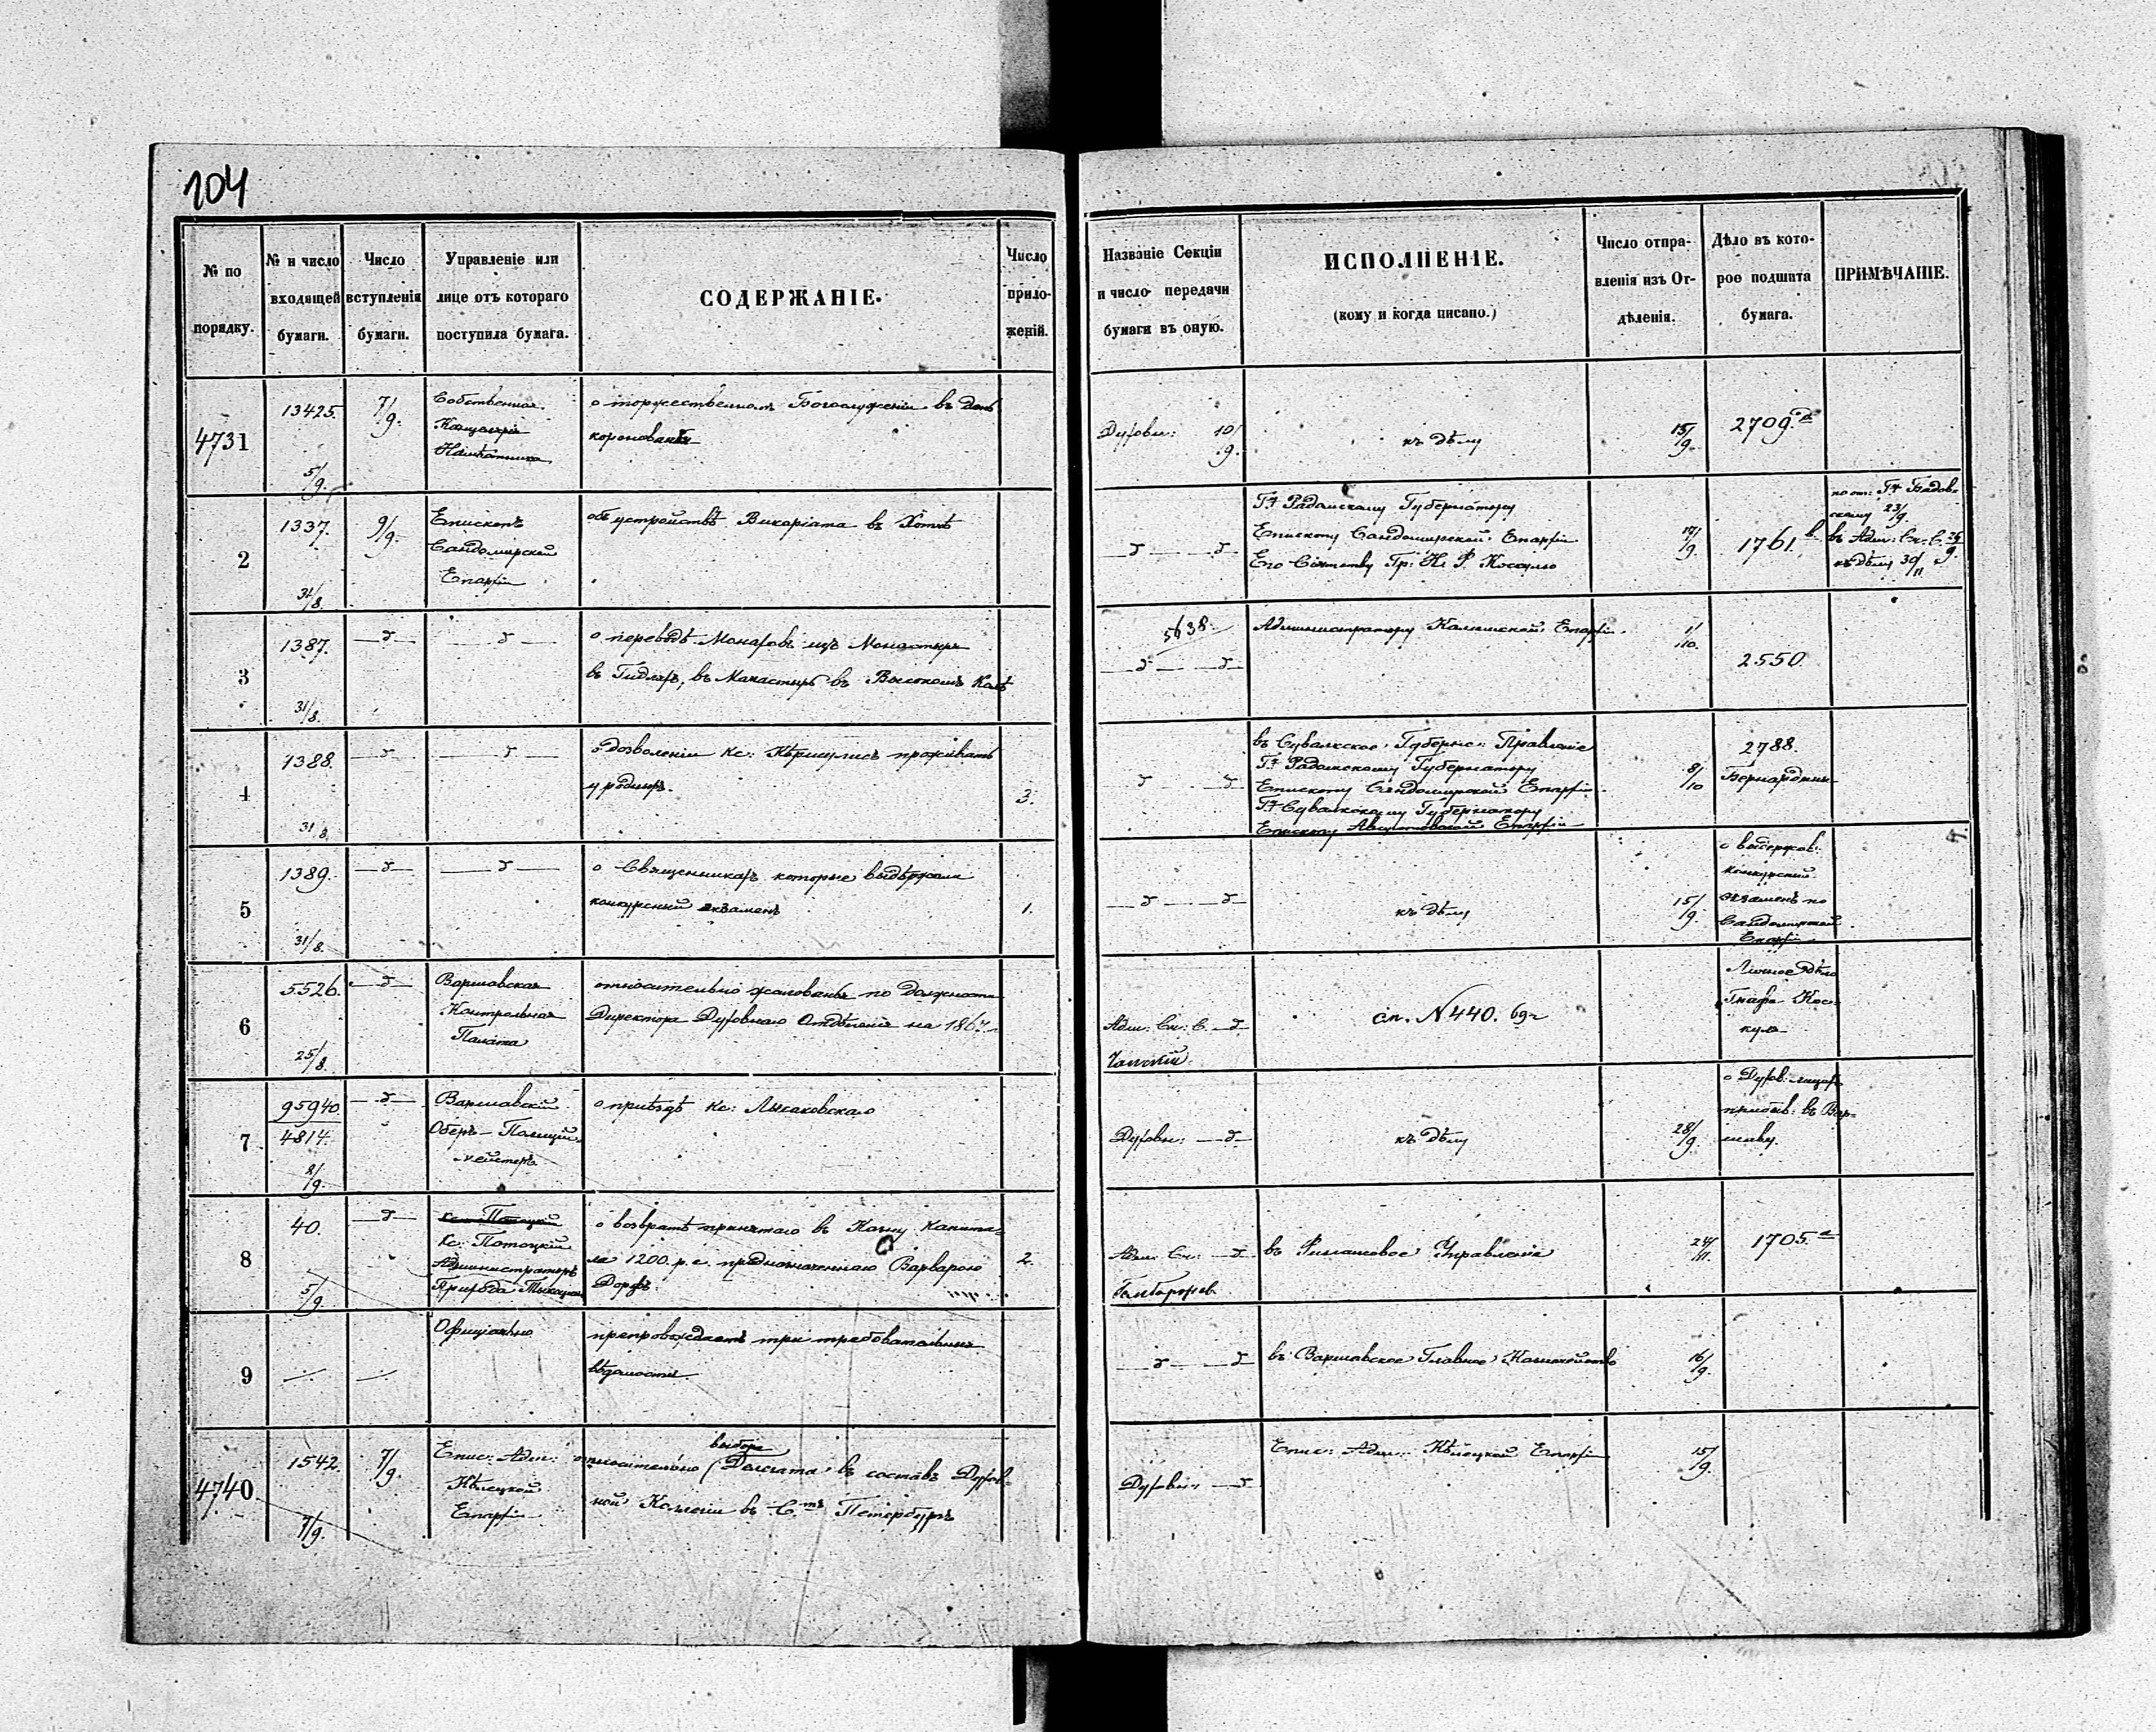 104
№ по порядку.
№ и число входящей бумаги.
Число вступленія бумаги.
Управленіе или лице отъ котораго поступила бумага.
СОДЕРЖАНІЕ.
Число приложеній.
Названіе Секціи и число передачи бумаги въ оную.
ИСПОЛНЕНІЕ.
(кому и когда писано.)
Число отправленія изъ Отдѣленія.
Дѣло въ которое подшита бумага.
ПРИМѢЧАНІЕ.
4731
13425.
5/9.
7/9.
Собственная
Канцелярія
Намѣстника
о торжественномъ Богослуженіи въ день
коронованія
Духовн: 10/9.
къ дѣлу
15/9.
2709.
2
1337.
31/8.
9/9.
Епископъ
Сандомирской
Епархіи
объ устройствѣ Викаріата въ Хотчѣ
Гну Радомскому Губернатору
Епископу Сандомирской Епархіи
Его Сіятельству Гр:
17/9.
1761.
23/9
въ Адм: Ск. С. 25/9.
къ дѣлу 30/11
3
1387.
31/8.
о переводѣ Монаховъ изъ Монастыря
въ Гидляхъ, въ Монастырь въ Высокомъ Колѣ
5638.
Администратору Калишской Епархіи
1/10.
2550.
4
1388.
31/8.
о дозволеніи Кс: проживать
у родныхъ.
3.
въ Сувалкское Губернс: Правленіе
Гну Радомскому Губернатору
Епископу Сандомирской Епархіи
Гну Сувалкскому Губернатору
Епископу Августовской Епархіи
8/10
2788.
Бернардины
5
1389.
31/8.
о Священникахъ которые выдержали
конкурсный экзаменъ
1.
къ дѣлу
15/9.
о выдержав:
конкурсный
экзаменъ по
Сандомирской
Епархіи
6
5526.
25/8.
Варшавская
Контрольная
Палата
относительно жалованья по должности
Директора Духовнаго Отдѣленія на 1867 г.
Адм: Ск: С.
сп. № 440. 69 г
Личное дѣло
Графа Кос-
куля
7
95940.
4814.
8/9.
Варшавскій
Оберъ-Полиций-
мейстеръ
о пріѣздѣ Кс: Лысаковскаго
Духовн:
къ дѣлу
28/9.
о Духов: лицахъ
прибыв: въ Вар-
шаву.
8
40.
5/9.
Кс: Потоцкій
Кс: Потоцкій
Администраторъ
Прихода
о возвратѣ принятаго въ Казну Капита-
ла 1200 р. с. предназначеннаго Варварою
2.
Адм: Ск:
въ Финансовое Управленіе
24/11.
1705
9
Офиціально
препровождаетъ три требовательныя
вѣдомости
въ Варшавское Главное Казначейство
16/9.
4740
1542.
7/9.
7/9.
Епис: Адм:
Кѣлецкой
Епархіи
выбора
относительно Делегата въ составъ Духов-
ной Коллегіи въ С.тъ Петербургъ
Духовн:
Епис: Адм: Кѣлецкой Епархіи
15/9.